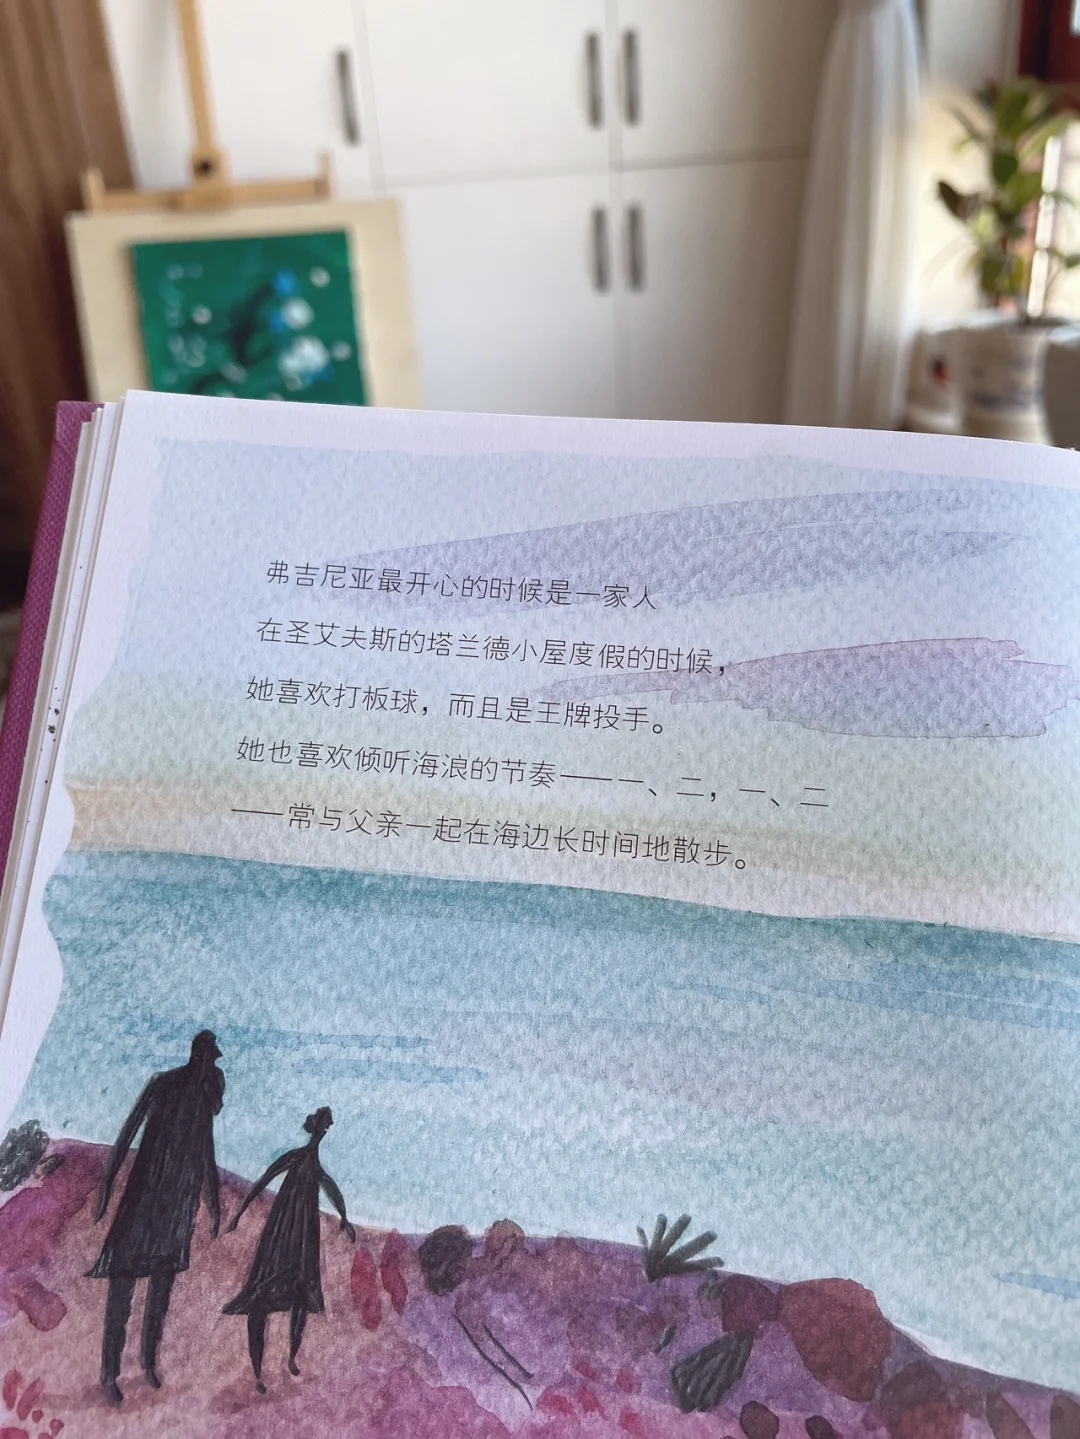 弗吉尼亚最开心的时候是一家人
在圣艾夫斯的塔兰德小屋度假的时候，
她喜欢打板球，而且是王牌投手。
她也喜欢倾听海浪的节奏——一、二，一、二
——常与父亲一起在海边长时间地散步。